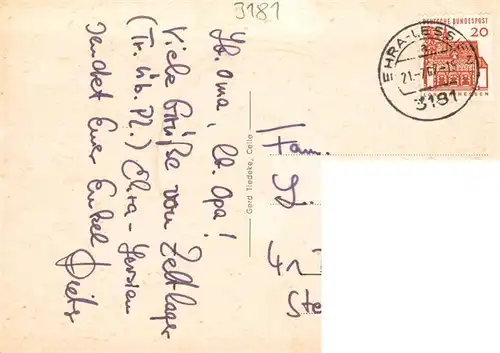 3181
Lb. Oma, lb. Opa!
Viele Grüße vom Zeltlager
(Tr. Üb. Pl.) Ehra-Lessien
sendet Euer Enkel
Dietz
Gerd Tiedeke, Celle
Fam.
DEUTSCHE BUNDESPOST
20
HESSEN
EHRA-LESS
21.-7.6
3181